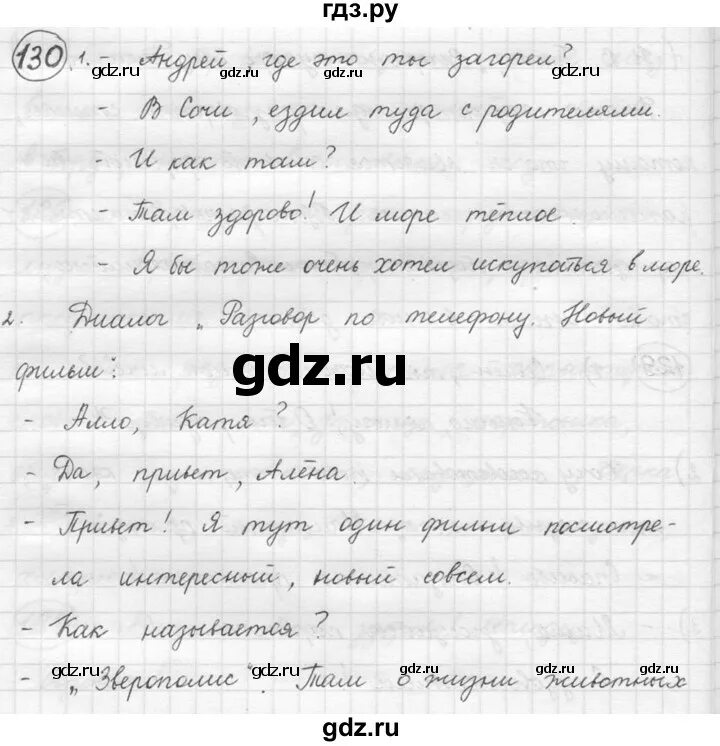 гдз.ру
130. 1. - Андрей, где это ты загорел?
- В Сочи, ездил туда с родителями.
- И как там?
- Там здорово! И море тёплое.
- Я бы тоже очень хотел искупаться в море.
2. Диалог „Разговор по телефону. Новый
фильм“:
- Алло, Катя?
- Да, привет, Алёна.
- Привет! Я тут один фильм посмотре-
ла интересный, новый совсем.
- Как называется?
- „Зверополис“. Там о жизни животных
gdz.ru